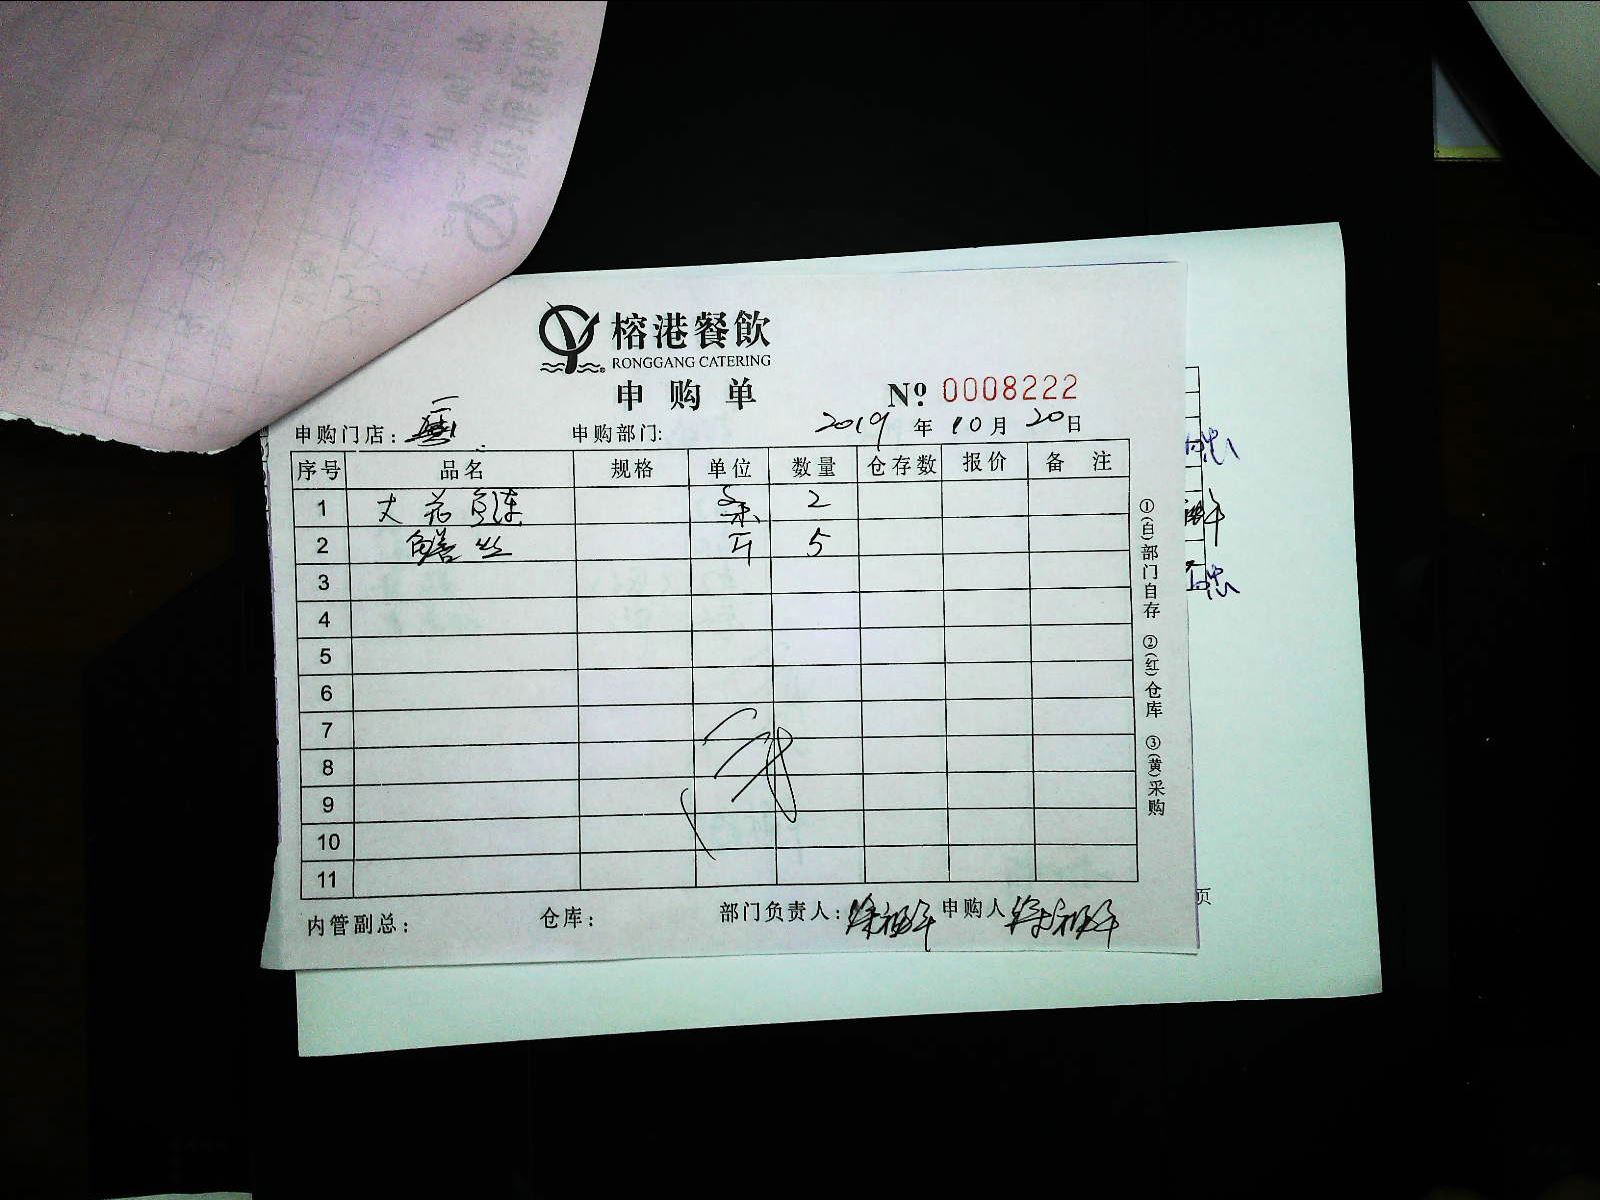 榕港餐飲
RONGGANG CATERING
申购单
№ 0008222
申购门店: 申购部门: 2019 年 10 月 20 日
序号 品名 规格 单位 数量 仓存数 报价 备 注
1 大花鲢 条 2
2 鳝丝 斤 5
3
4
5
6
7
8
9
10
11
①(白)部门自存 ②(红)仓库 ③(黄)采购
内管副总: 仓库: 部门负责人: 申购人
页